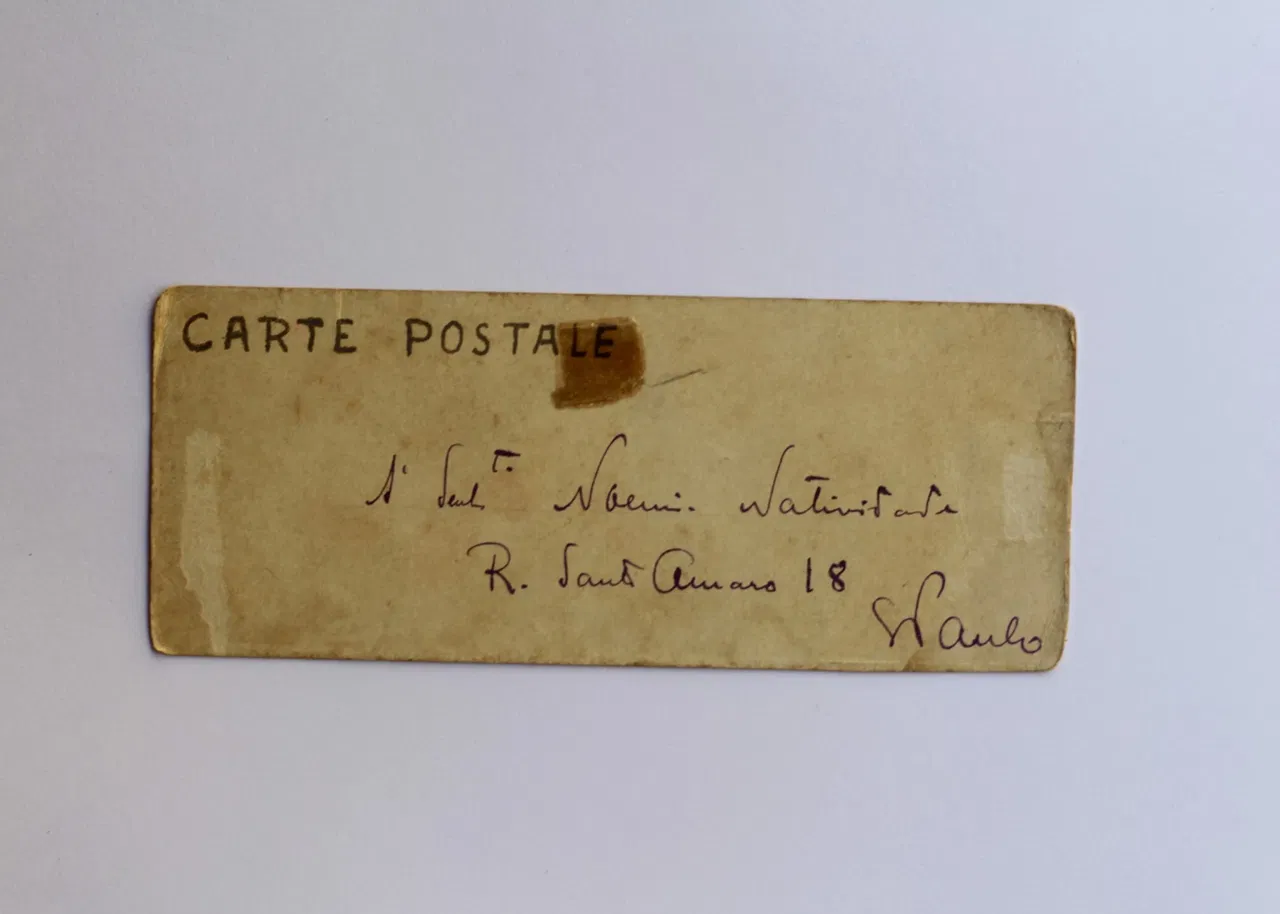 CARTE POSTALE
A' Senh.ta Noemi Natividade
R. Santo Amaro 18
S Paulo